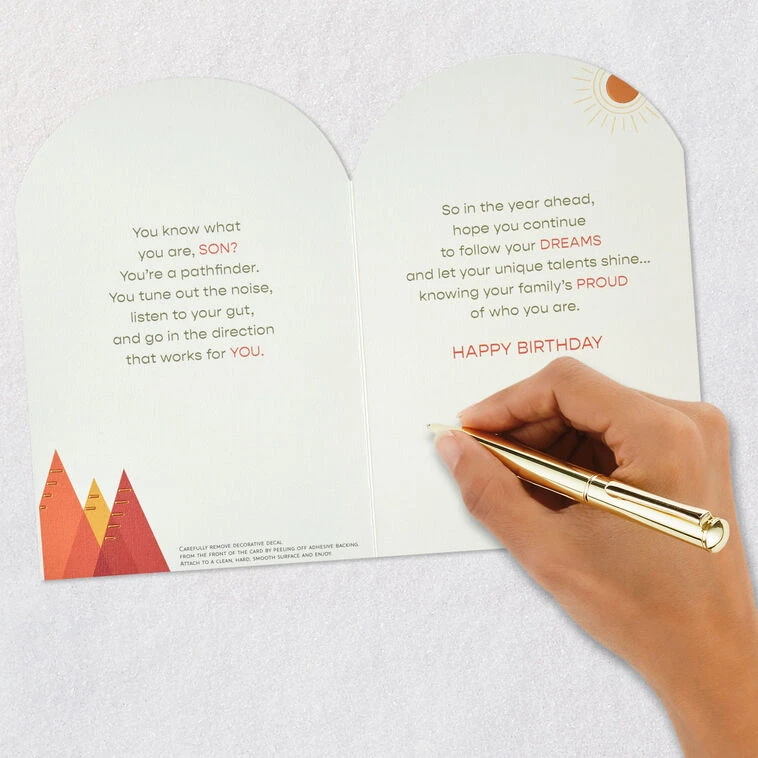 You know what
you are, SON?
You're a pathfinder.
You tune out the noise,
listen to your gut,
and go in the direction
that works for YOU.
CAREFULLY REMOVE DECORATIVE DECAL
FROM THE FRONT OF THE CARD BY PEELING OFF ADHESIVE BACKING.
ATTACH TO A CLEAN, HARD, SMOOTH SURFACE AND ENJOY.
So in the year ahead,
hope you continue
to follow your DREAMS
and let your unique talents shine...
knowing your family's PROUD
of who you are.
HAPPY BIRTHDAY